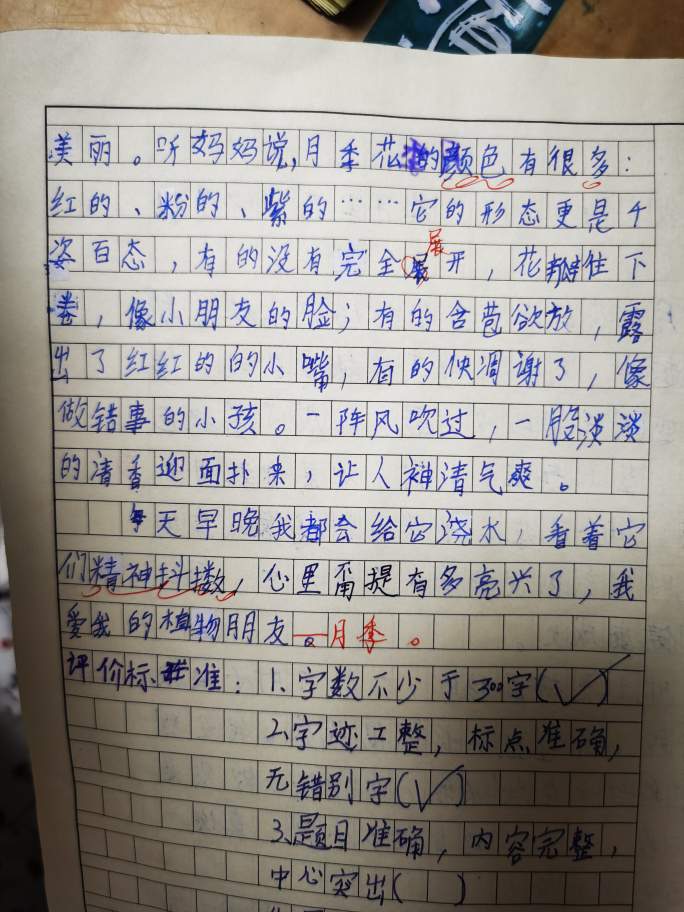 美丽。听妈妈说,月季花的颜色有很多:
红的、粉的、紫的……它的形态更是千
姿百态,有的没有完全展开,花瓣往下
卷,像小朋友的脸;有的含苞欲放,露
出了红红的的小嘴,有的快凋谢了,像
做错事的小孩。一阵风吹过,一股淡淡
的清香迎面扑来,让人神清气爽。
每天早晚我都会给它浇水,看着它
们精神抖擞,心里甭提有多高兴了,我
爱我的植物朋友—月季。
评价标准:1.字数不少于300字(✓)
2.字迹工整,标点准确,
无错别字(✓)
3.题目准确,内容完整,
中心突出( )